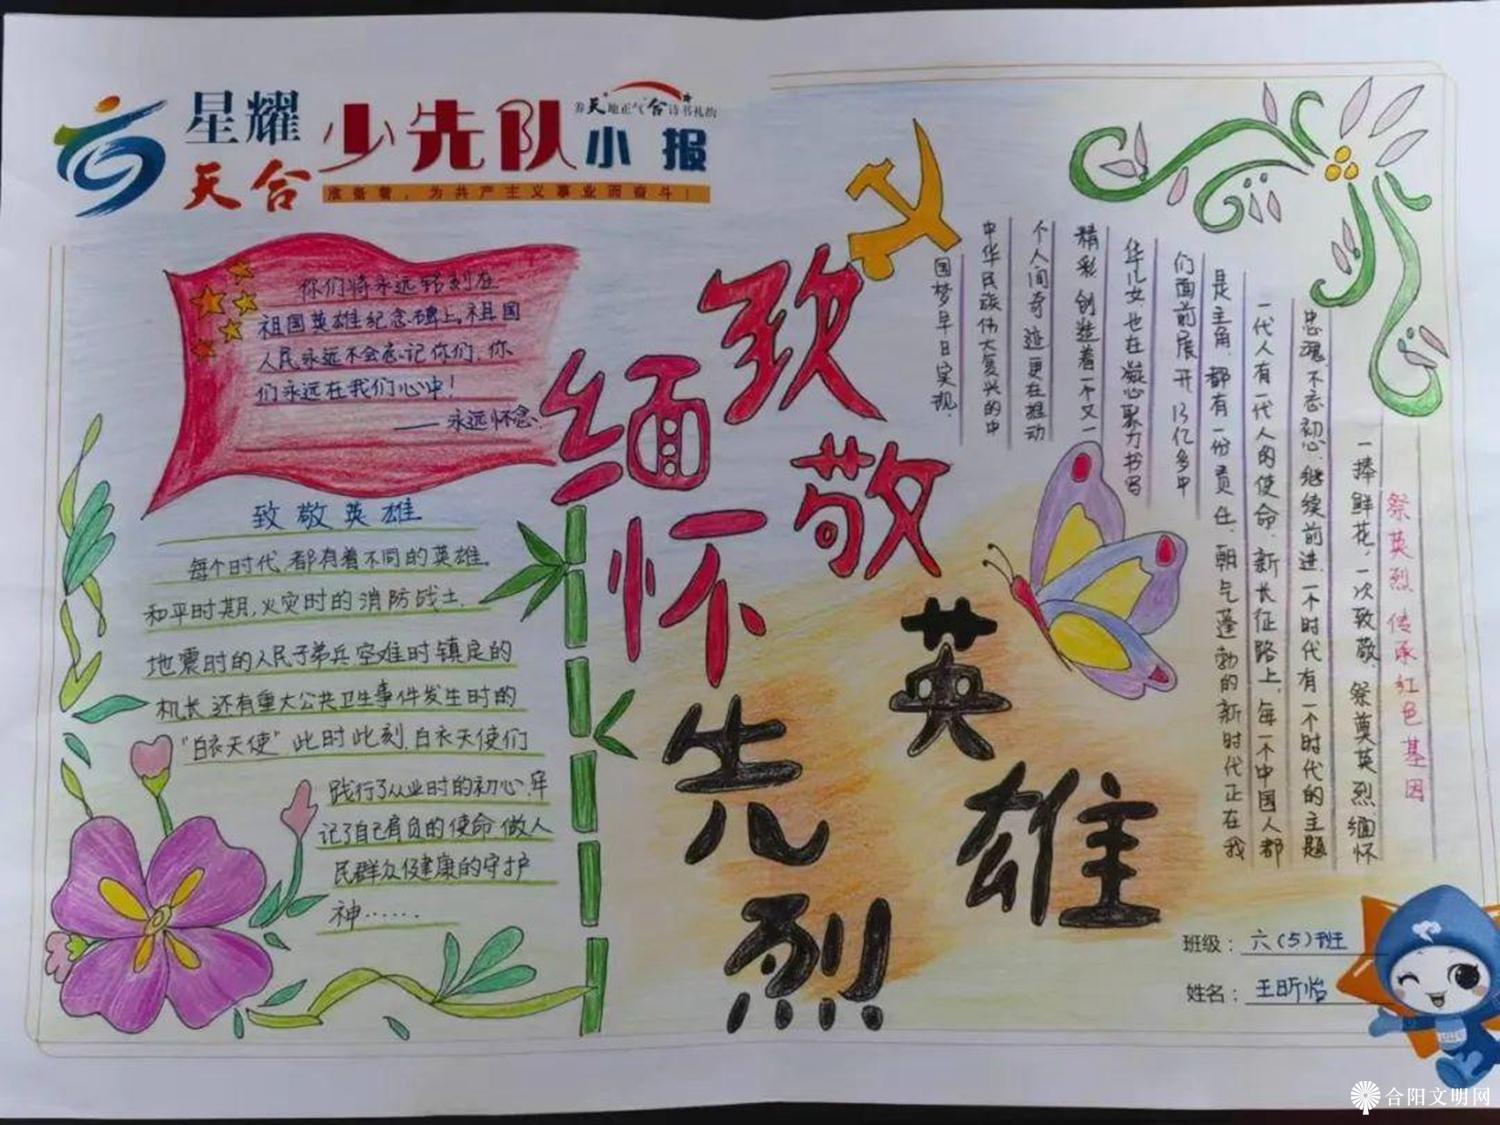 星耀
天合
少先队小报
养天地正气 合诗书礼韵
准备着，为共产主义事业而奋斗！
你们将永远铭刻在
祖国英雄纪念碑上。祖国
人民永远不会忘记你们，你
们永远在我们心中！
——永远怀念
致敬英雄
每个时代，都有着不同的英雄。
和平时期，火灾时的消防战士，
地震时的人民子弟兵空难时镇定的
机长，还有重大公共卫生事件发生时的
“白衣天使”此时此刻，白衣天使们
践行了从业时的初心，牢
记了自己肩负的使命，做人
民群众健康的守护
神……
缅怀先烈
致敬英雄
祭英烈 传承红色基因
一捧鲜花，一次致敬，祭奠英烈，缅怀
忠魂，不忘初心，继续前进，一个时代有一个时代的主题
一代人有一代人的使命，新长征路上，每一个中国人都
是主角，都有一份责任，朝气蓬勃的新时代正在我
们面前展开，13亿多中
华儿女也在凝心聚力书写
精彩，创造着一个又一
个人间奇迹，更在推动
中华民族伟大复兴的中
国梦早日实现。
班级：六(5)班
姓名：王昕怡
合阳文明网